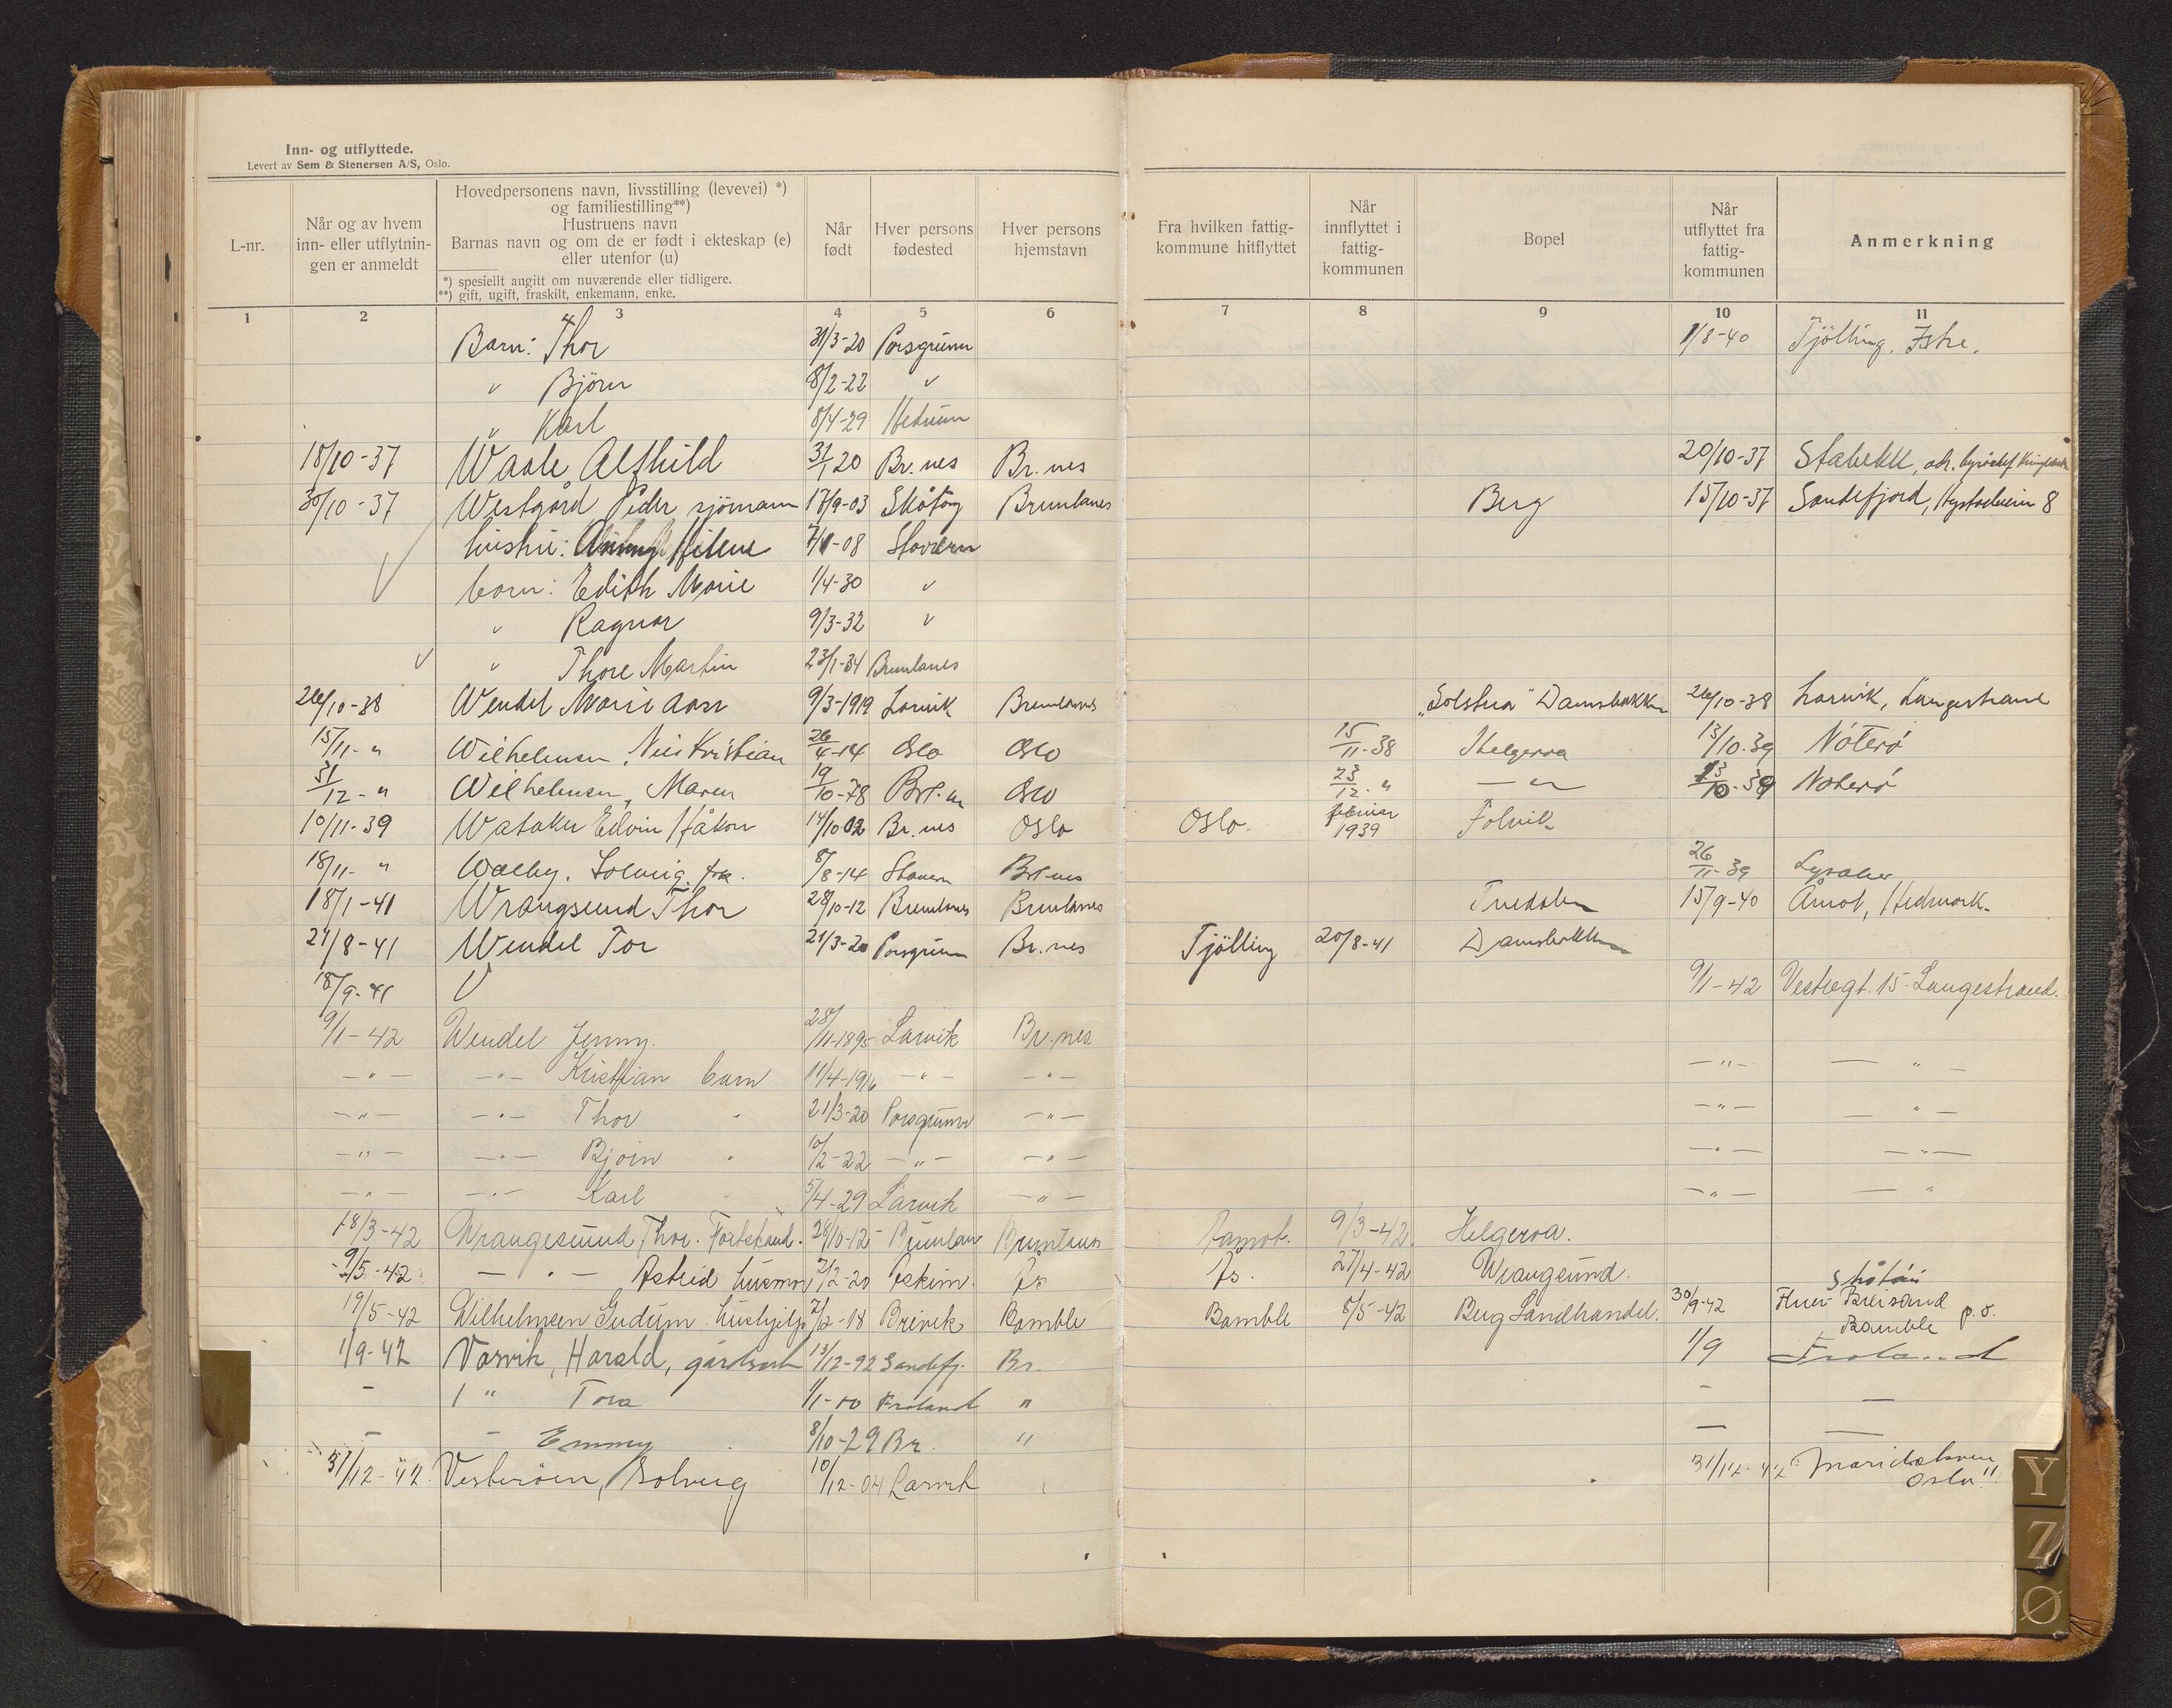 Inn- og utflyttede.
Levert av Sem & Stenersen A/S, Oslo.
L-nr.
Når og av hvem inn- eller utflytnin- gen er anmeldt
Hovedpersonens navn, livsstilling (levevei) *) og familiestilling**) Hustruens navn Barnas navn og om de er født i ekteskap (e) eller utenfor (u)
*) spesiellt angitt om nuværende eller tidligere.
**) gift, ugift, fraskilt, enkemann, enke.
Når født
Hver persons fødested
Hver persons hjemstavn
Fra hvilken fattig- kommune hitflyttet
Når innflyttet i fattig- kommunen
Bopel
Når utflyttet fra fattig- kommunen
Anmerkning
1 2 3 4 5 6 7 8 9 10 11
Barn: Thor 31/3-20 Porsgrunn 1/8-40 Tjölling. Istre.
" Björn 8/2-22 "
" Karl 8/4-29 Hedrum
18/10-37 Waale Alfhild 31/1 20 Br.nes Br.nes 20/10-37 Stabekk,
30/10-37 Westgård Peder sjömann 17/9-03 Skåtøy Brunlanes Berg 15/10-37 Sandefjord, 8
hustru: Helene 08 Stavern
barn: Edith Marie 1/4-30 "
" Ragnar 9/3-32 "
" Thore Martin 23/1-34 Brunlanes
26/10-38 Wendel Marie 9/3-1919 Larvik Brunlanes "Solstua" Damsbakken 26/10-38 Larvik, Langestrand
15/11- " Wilhelmsen, Nils Kristian 26/4-14 Oslo Oslo 15/11-38 Helgeroa 13/10-39 Nøterø
31/12- " Wilhelmsen, Maren 19/10-78 Oslo 23/12- " — " 13/10-39 Nøterø
10/11-39 Wataker Edvin Håkon 14/10 02 Br.nes Oslo Oslo. februar 1939 Folvik
18/11- " Waelby. Solveig. frk. 8/8-14 Stavern Brl.nes 26/11-39 Lysaker
18/1-41 Wrangsund Thor 28/10-12 Brunlanes Brunlanes Tvedalen 15/9-40 Åmot, Hedmark.
21/8-41 Wendel Tor 21/3-20 Porsgrunn Br.nes Tjölling 20/8-41 Damsbakken
18/9-41 9/1-42 Vestregt. 15. Langestrand.
9/1-42 Wendel Jenny. 28/11-1895 Larvik Br.nes
— " — — " — Kristian barn 11/4-1916 — " — — " — — " — — " —
— " — — " — Thor " 21/3-20 Porsgrunn — " — — " — — " —
— " — — " — Bjørn " 10/2-22 — " — — " — — " — — " —
— " — — " — Karl " 5/4-29 Larvik — " — — " — — "
18/3-42 Wrangesund Thor. 28/10-12 Brunlan Brunlanes 9/3-42 Helgeroa.
9/5-42 — " — Astrid husmor /2-20 Askim. 27/4-42 Wrangsund.
19/5-42 Wilhelmsen Gudrun. hushjelp 2/12-18 Brevik Bamble Bamble 8/5-42 Berg Landhandel. 30/9-42 p.å. Bamble
1/9-42 Varvik, Harald, gårdsarb 13/12-92 Sandefj. Br. 1/9 Froland
- " Tora 1/1-10 Froland " - —
- - Emmy 8/10-29 Br. " — —
31/12-42. Vesterøen, Solveig 10/12-04 Larvik 31/12-42 Maridalsveien Oslo.
Y
Z
Ø